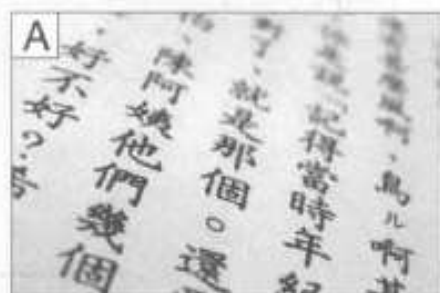 A
啊、鳥ㄦ啊
記得當時年紀
了、就是那個。還
、陳阿姨他們幾個
、好不好?